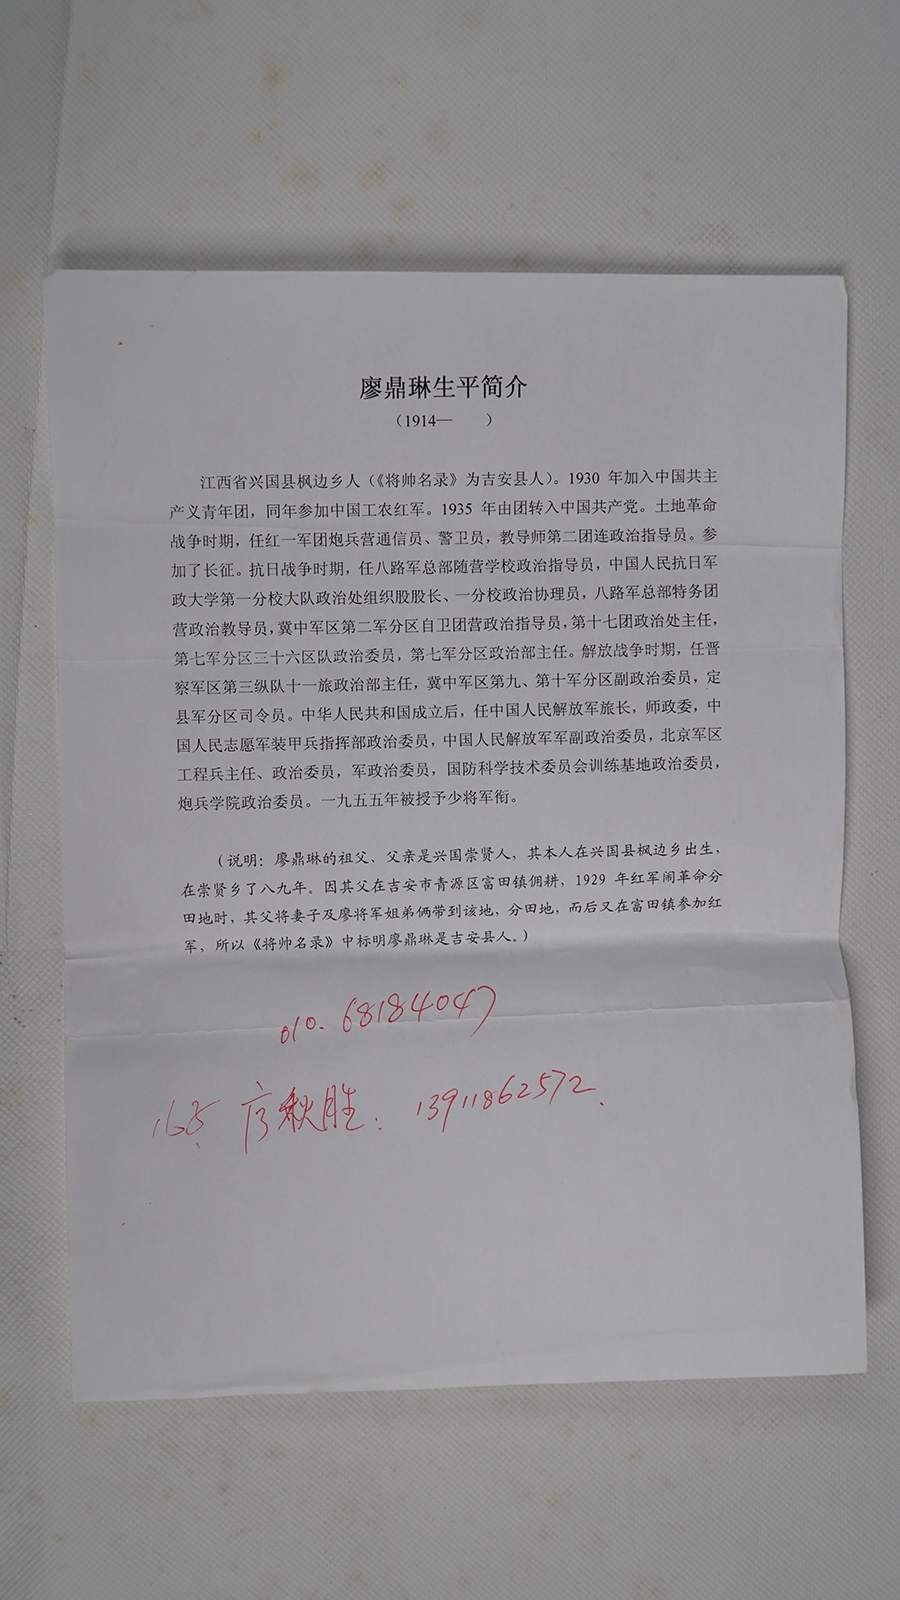 廖鼎琳生平简介
（1914—　　）
江西省兴国县枫边乡人（《将帅名录》为吉安县人）。1930 年加入中国共主
产义青年团，同年参加中国工农红军。1935 年由团转入中国共产党。土地革命
战争时期，任红一军团炮兵营通信员、警卫员，教导师第二团连政治指导员。参
加了长征。抗日战争时期，任八路军总部随营学校政治指导员，中国人民抗日军
政大学第一分校大队政治处组织股股长、一分校政治协理员，八路军总部特务团
营政治教导员，冀中军区第二军分区自卫团营政治指导员，第十七团政治处主任，
第七军分区三十六区队政治委员，第七军分区政治部主任。解放战争时期，任晋
察军区第三纵队十一旅政治部主任，冀中军区第九、第十军分区副政治委员，定
县军分区司令员。中华人民共和国成立后，任中国人民解放军旅长，师政委，中
国人民志愿军装甲兵指挥部政治委员，中国人民解放军军副政治委员，北京军区
工程兵主任、政治委员，军政治委员，国防科学技术委员会训练基地政治委员，
炮兵学院政治委员。一九五五年被授予少将军衔。
（说明：廖鼎琳的祖父、父亲是兴国崇贤人，其本人在兴国县枫边乡出生，
在崇贤乡了八九年。因其父在吉安市青源区富田镇佣耕，1929 年红军闹革命分
田地时，其父将妻子及廖将军姐弟俩带到该地，分田地，而后又在富田镇参加红
军，所以《将帅名录》中标明廖鼎琳是吉安县人。）
010-68184047
秋胜. 13911862572.